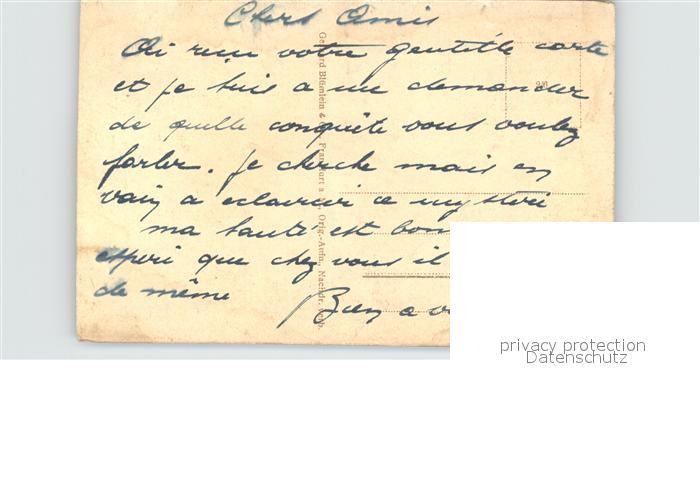 Chers Amis
Ai reçu votre gentille carte
et je suis a me demander
de quelle conquête vous voulez
parler. je cherche mais en
vain a eclaircir ce mystère
ma santé est bon
esperé que chez vous il
de même
Bien a vo
Gebhard Blümlein & Co., Frankfurt a. M., Orig.-Aufn., Nachdr. verb.
privacy protection
Datenschutz